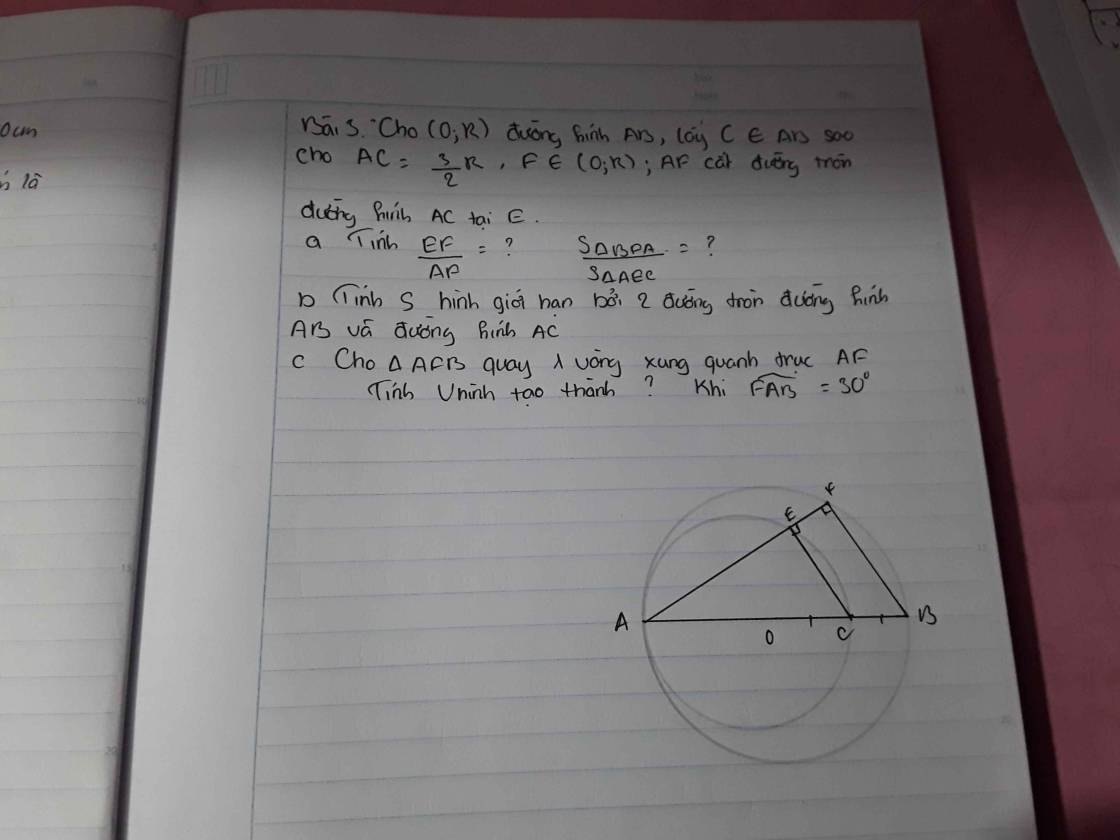 0cm
là
Bài 3. Cho (O;R) đường kính AB, lấy C ∈ AB sao
cho AC = 3/2 R, F ∈ (O;R); AF cắt đường tròn
đường kính AC tại E.
a Tính EF/AF = ? S∆BFA/S∆AEC = ?
b Tính S hình giới hạn bởi 2 đường tròn đường kính
AB và đường kính AC
c Cho ∆ AFB quay 1 vòng xung quanh trục AF
Tính Vhình tạo thành ? Khi FAB = 30°
F
E
A
O
C
B